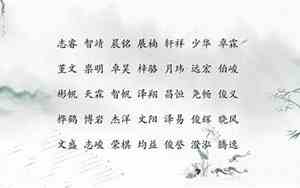 志睿 智靖 晨铭 展楠 轩祥 少华 卓霖
堇文 崇明 卓昊 梓骆 月玮 远宏 伯峻
彬帆 天霖 智帆 泽翔 昌恒 尧畅 俊义
桦鹤 博岩 杰洋 文阳 泽易 俊辉 晓风
文盛 志峻 荣棋 均益 俊誉 泓 腾逸